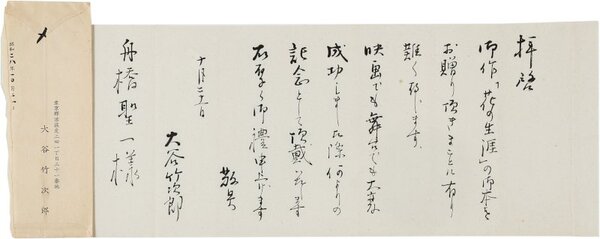 拝啓
御作「花の生涯」の御本を
お贈り頂きまことに有り
難く存じます。
映画でも舞台でも大変
成功しました際何よりの
記念として頂戴致します
右厚く御礼申上げます
敬具
十月二十一日
大谷竹次郎
舟橋聖一様
〆
昭和二八年一〇月
東京都
大谷竹次郎